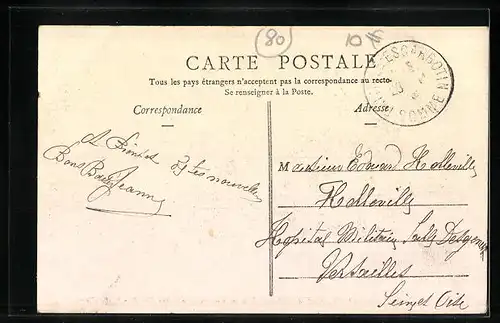 80
10 f
CARTE POSTALE
ESCARBOTIN
SOMME
Tous les pays étrangers n'acceptent pas la correspondance au recto
Se renseigner à la Poste.
Correspondance
Adresse
A Bientot
Bons Baisers
Jeanne
tes nouvelles
Monsieur Edouard Holleville
Holleville
Hopital Militaire Salle Desgenettes
Versailles
Seine et Oise